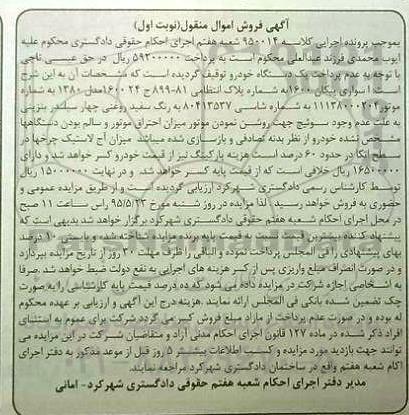 آگهی فروش اموال منقول(نوبت اول)
بموجب پرونده اجرایی کلاسه ۹۵۰۰۱۴ شعبه هفتم اجرای احکام حقوقی دادگستری محکوم علیه
ایوب محمدی فرزند عبدالعلی محکوم است به پرداخت ۵۹۲۰۰۰۰۰ ریال در حق عیسی تاجی
با توجه به عدم پرداخت یک دستگاه خودرو توقیف گردیده است که مشخصات آن به این شرح
است: سواری پیکان ۱۶۰۰به شماره پلاک انتظامی ۸۱-۸۹۹ ج ۲۴ ۱۶۰۰مدل ۱۳۸۰ به شماره
موتور ۱۱۱۳۸۰۰۰۲۰۴ به شماره شاسی ۸۰۴۱۳۵۳۷ به رنگ سفید روغنی چهار سیلندر بنزینی
به علت عدم وجود سوئیچ جهت روشن نمودن موتور میزان احتراق موتور و سالم بودن دستگاهها
مشخص نشده خودرو از نظر بدنه تصادفی و بازسازی شده میباشد میزان آج لاستیک چرخها در
سطح اتکا در حدود ۶۰ درصد است هزینه پارکینگ نیز از قیمت خودرو کسر خواهد شد و دارای
۱۶۵۰۰۰۰۰ ریال خلافی است که از قیمت پایه کسر خواهد شد و در نهایت ۱۵۰۰۰۰۰۰ ریال
توسط کارشناس رسمی دادگستری شهرکرد ارزیابی گردیده است و از طریق مزایده عمومی و
حضوری به فروش خواهد رسید. لذا مزایده در روز شنبه مورخ ۹۵/۵/۲۳ راس ساعت ۱۱ صبح
در محل اجرای احکام شعبه هفتم حقوقی دادگستری شهرکرد برگزار خواهد شد بدیهی است که
پیشنهاد کننده بیشترین قیمت نسبت به قیمت پایه برنده مزایده شناخته شده و بایستی ۱۰ درصد
بهای پیشنهادی را فی المجلس پرداخت نموده و الباقی را ظرف مهلت ۳۰ روز از تاریخ مزایده بپردازد
و در صورت انصراف مبلغ واریزی پس از کسر هزینه های اجرایی به نفع دولت ضبط خواهد شد .صرفا
به اشخاصی اجازه شرکت در مزایده داده می شود که ده درصد قیمت پایه کارشناسی را به صورت
چک تضمین شده بانکی فی المجلس ارائه نمایند .هزینه درج این آگهی و ارزیابی بر عهده محکوم
له بوده و در صورت عدم پرداخت از مازاد مبلغ فروش کسر می گردد.شرکت برای عموم به استثنای
افراد ذکر شده در ماده ۱۲۷ قانون اجرای احکام مدنی آزاد و متقاضیان شرکت در این مزایده می
توانند جهت بازدید مورد مزایده و کسب اطلاعات بیشتر ۵ روز قبل از موعد مذکور به دفتر اجرای
احکام شعبه هفتم واقع در ساختمان دادگستری شهرکرد مراجعه نمایند.
مدیر دفتر اجرای احکام شعبه هفتم حقوقی دادگستری شهرکرد- امانی